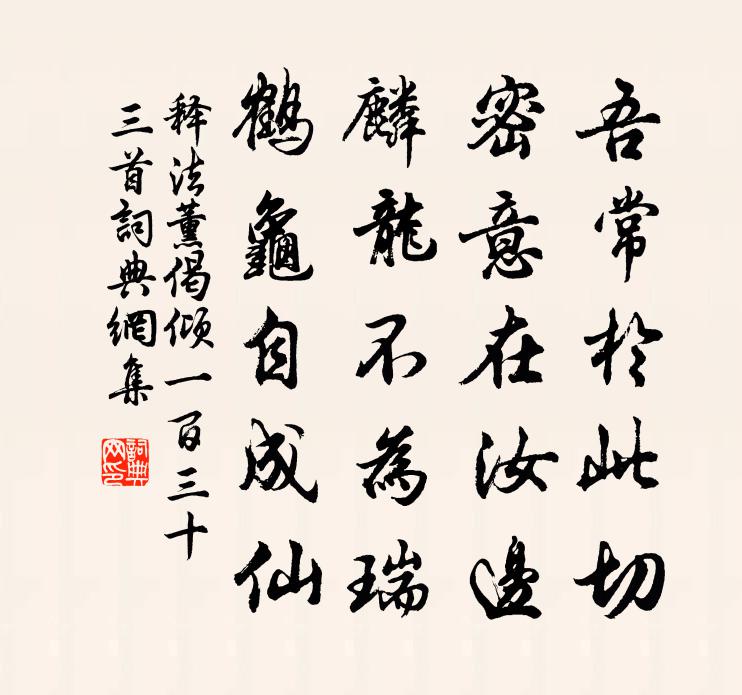 吾常於此切
密意在汝邊
麟龍不為瑞
鶴龜自成仙
释法薰偈倾一百三十
三首詞典網集
詞典
网印